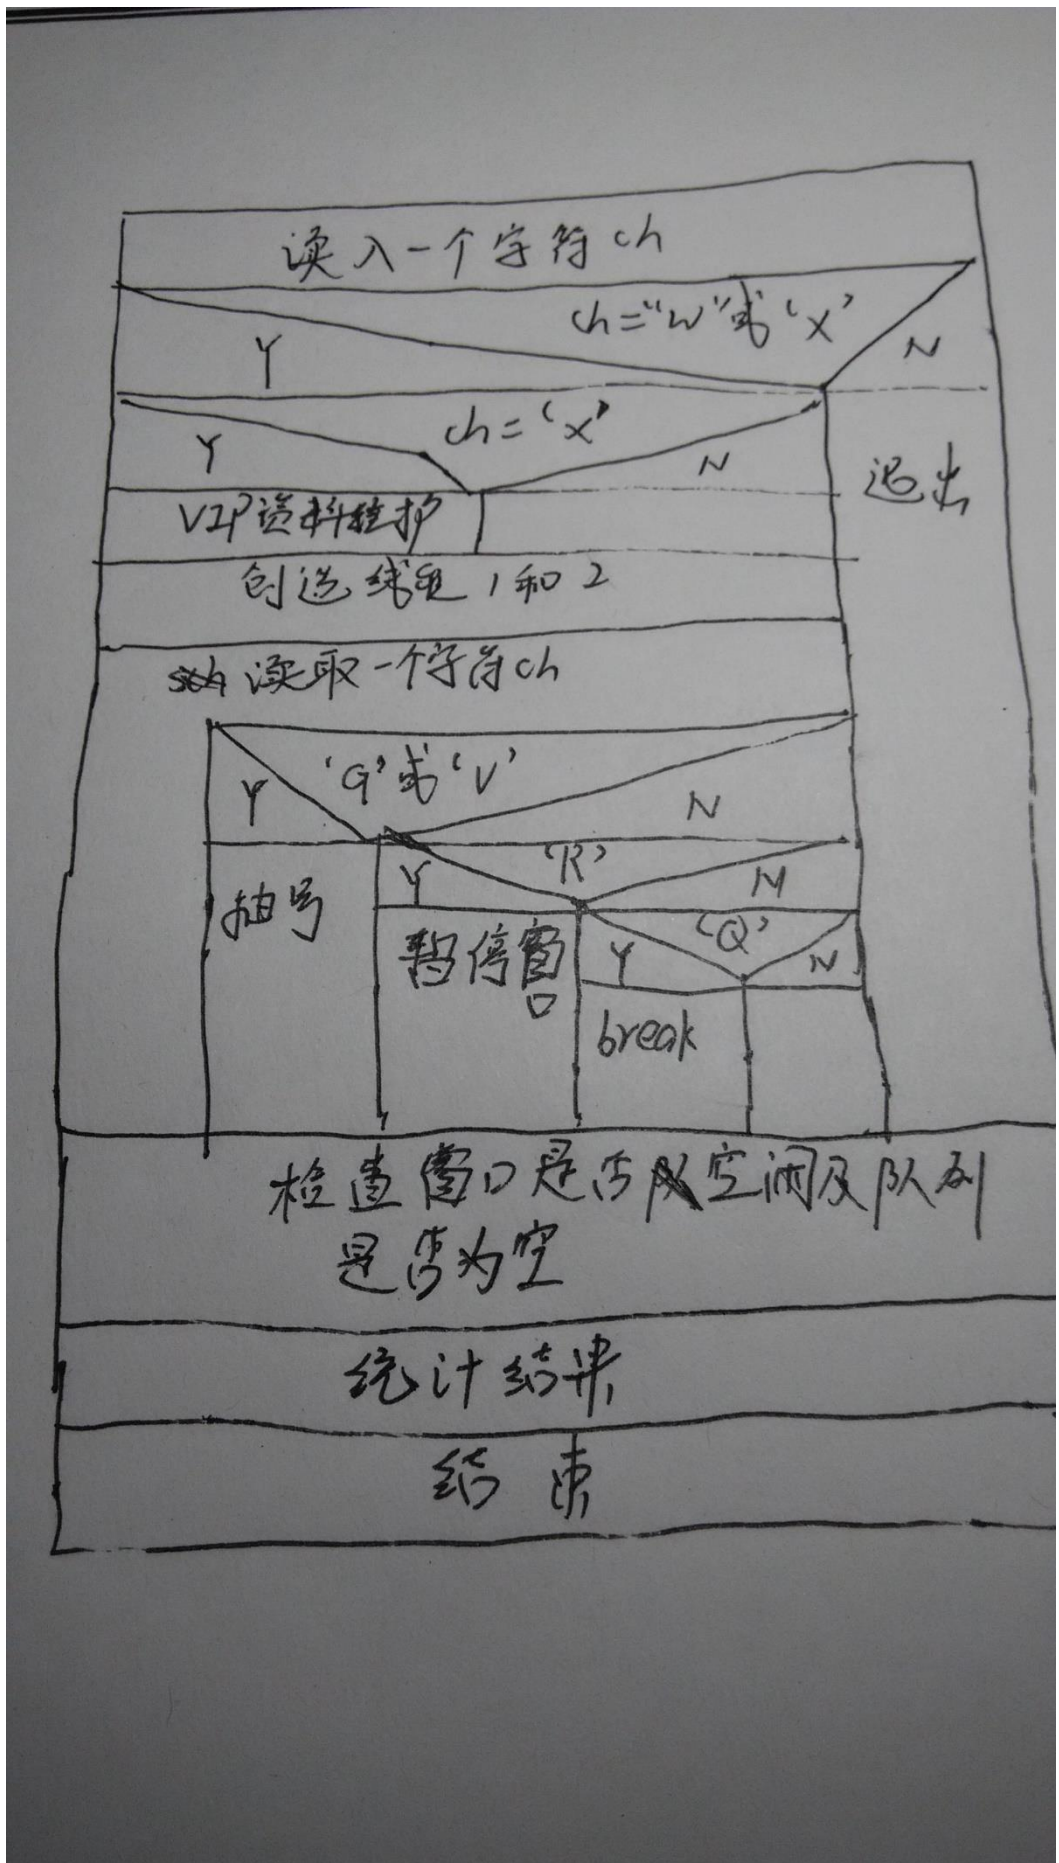 读入一个字符ch
ch="W"或'X'
Y
N
ch='X'
Y
N
退出
VIP资料维护
创造线程1和2
读取一个字符ch
'G'或'V'
Y
N
'R'
Y
N
抽号
'Q'
暂停窗口
Y
N
break
检查窗口是否空闲及队列
是否为空
统计结果
结束